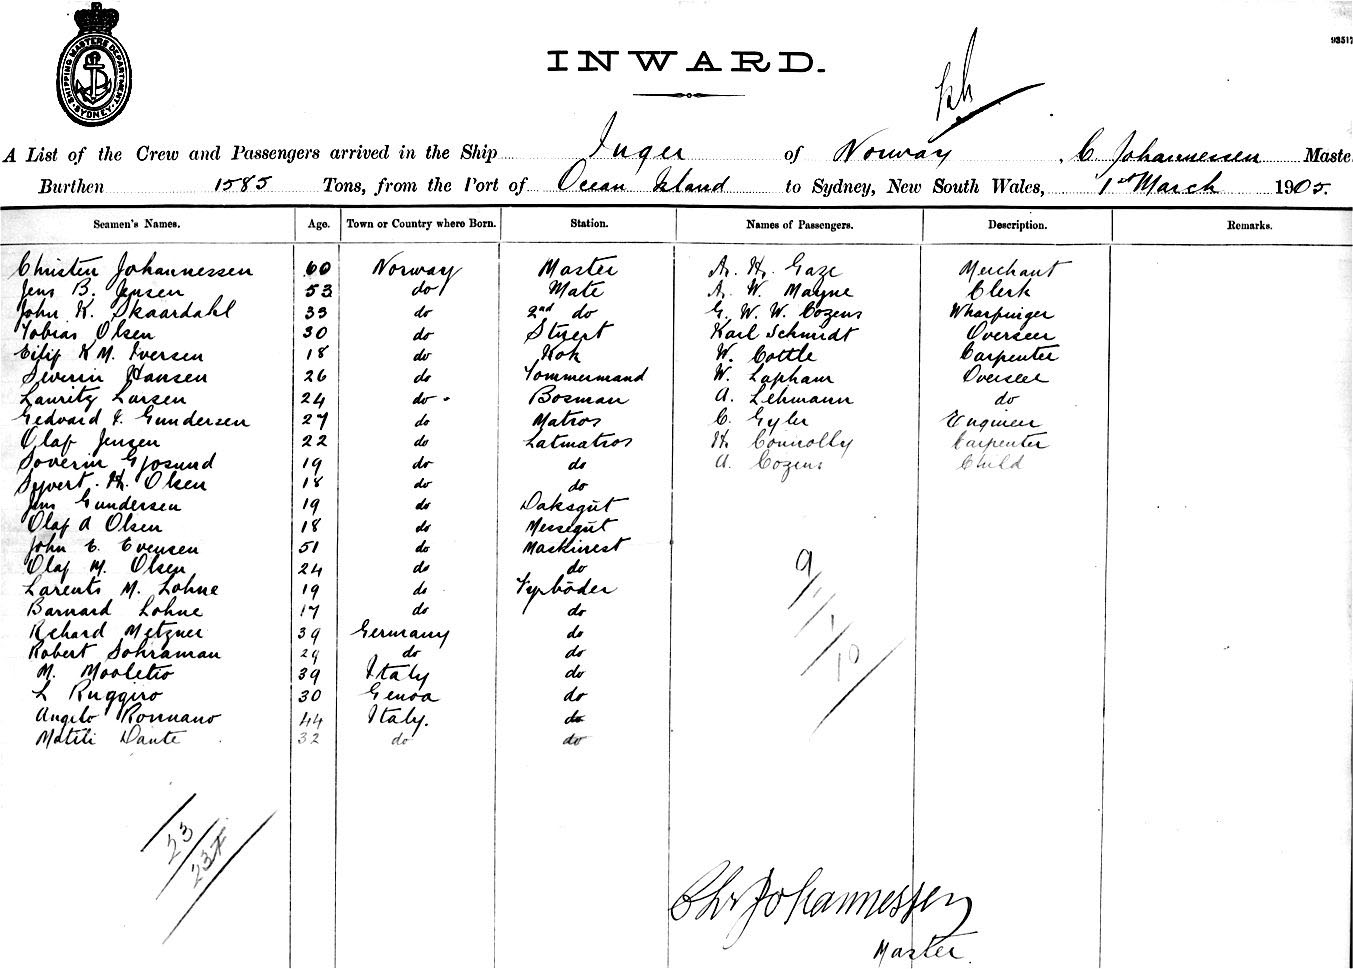 SHIPPING MASTERS DEPARTMENT SYDNEY
93517
INWARD.
A List of the Crew and Passengers arrived in the Ship Inger of Norway, C. Johannessen Maste
Burthen 1585 Tons, from the Port of Ocean Island to Sydney, New South Wales, 1st March 1905.
Seamen's Names. Age. Town or Country where Born. Station. Names of Passengers. Description. Remarks.
Christen Johannessen 60 Norway Master A. H. Gaze Merchant
Jens B. Jensen 53 do Mate A. W. Mayne Clerk
John K. Skaardahl 33 do 2nd do G. W. W. Cozens Wharfinger
Tobias Olsen 30 do Stuert Karl Schmidt Overseer
Eilif K M. Iversen 18 do Kok W. Cottle Carpenter
Severin Hansen 26 do Tommermand W. Lapham Overseer
Lauritz Larsen 24 do Bosman A. Lehmann do
Gedvard F. Gundersen 27 do Matros C. Gyler Engineer
Olaf Jensen 22 do Latmatros H. Connolly Carpenter
Soverin Gjosund 19 do do A. Cozens Child
Syvert H. Olsen 18 do do
Jens Gundersen 19 do Daksgut
Olaf A Olsen 18 do Messegut
John E. Evensen 51 do Maskinest
Olaf M. Olsen 24 do do
Larents M. Lohne 19 do Fyrböder
Barnard Lohne 17 do do
Richard Metzner 39 Germany do
Robert Sohraman 29 do do
M. Mooletio 39 Italy do
L Ruggiro 30 Genoa do
Angelo Romano 44 Italy. do
Mateli Dante 32 do do
9
10
23
23
Chr Johannessen
Master.